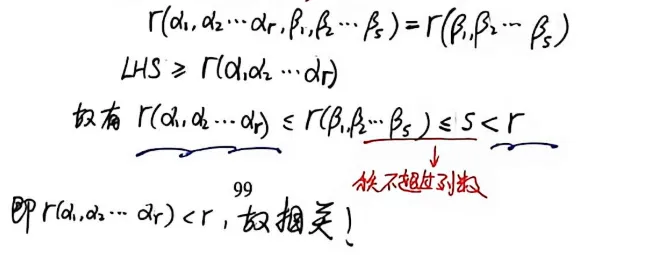 r(α₁,α₂⋯αᵣ,β₁,β₂⋯βₛ)=r(β₁,β₂⋯βₛ)
LHS ≥ r(α₁α₂⋯αᵣ)
故有 r(α₁,α₂⋯αᵣ) ≤ r(β₁,β₂⋯βₛ) ≤ s < r
秩不超过列数
99
即 r(α₁,α₂⋯αᵣ) < r, 故相关!